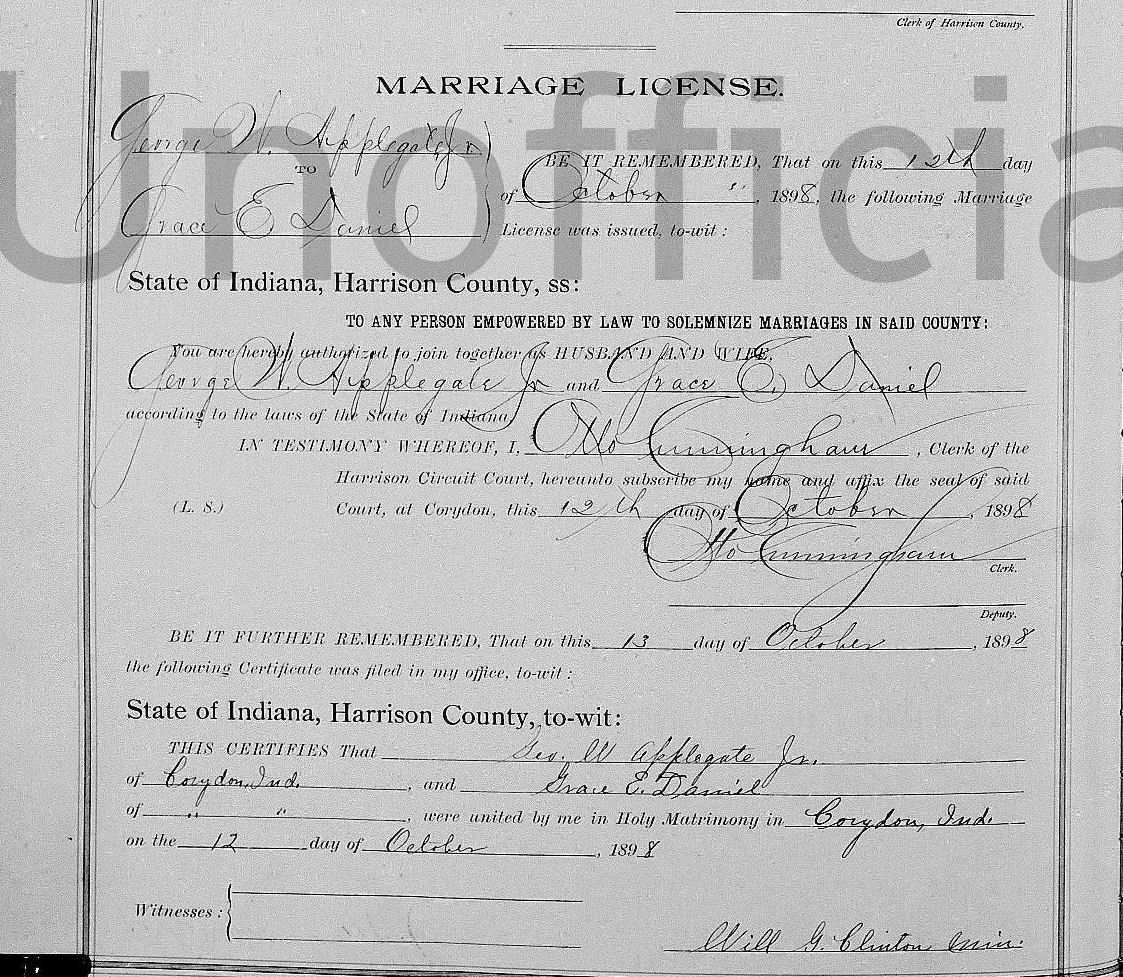 Clerk of Harrison County.
MARRIAGE LICENSE.
George W. Applegate Jr
TO
Grace E Daniel
BE IT REMEMBERED, That on this 12th day
of October ", 1898, the following Marriage
License was issued, to-wit :
Unofficia
State of Indiana, Harrison County, ss:
TO ANY PERSON EMPOWERED BY LAW TO SOLEMNIZE MARRIAGES IN SAID COUNTY:
You are hereby authorized to join together as HUSBAND AND WIFE,
George W. Applegate Jr and Grace E. Daniel
according to the laws of the State of Indiana.
IN TESTIMONY WHEREOF, I, Otto Cunningham, Clerk of the
Harrison Circuit Court, hereunto subscribe my name and affix the seal of said
(L. S.) Court, at Corydon, this 12th day of October, 1898
Otto Cunningham
Clerk.
Deputy.
BE IT FURTHER REMEMBERED, That on this 13 day of October, 1898
the following Certificate was filed in my office, to-wit :
State of Indiana, Harrison County, to-wit:
THIS CERTIFIES That Geo. W Applegate Jr.
of Corydon, Ind. , and Grace E. Daniel
of " " , were united by me in Holy Matrimony in Corydon, Ind.
on the 12 day of October, 1898
Witnesses :
Will G. Clinton Min.